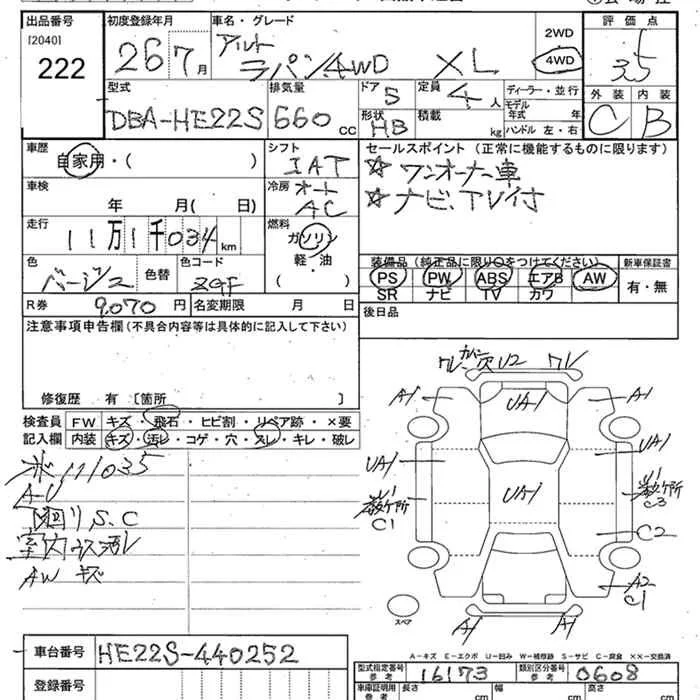 出品番号 初度登録年月 車名・グレード 評価点
[2040]
222
26 7月
アルト
ラパン4WD XL
2WD
4WD
3.5
型式 排気量 ドア 定員 ディーラー・並行
DBA-HE22S 660 cc
5 4人
モデル
年式 年
形状 積載
HB kg ハンドル 左・右
外装 内装
C B
車歴 シフト セールスポイント (正常に機能するものに限ります)
自家用・( ) IAT
☆ワンオーナー車
☆ナビ、TV付
車検 冷房 オート
年 月( 日) AC
走行 燃料
11万1千034 km ガソリン
軽・油
( )
装備品 (純正品に限り○をつけてください) 新車保証書
PS PW ABS エアB AW 有・無
SR ナビ TV カワ
色 色替 色コード
ベージュ ZGF
R券 9,070 円 名変期限 月 日
後日品
注意事項申告欄 (不具合内容等は具体的に記入して下さい)
修復歴 有 [箇所 ]
検査員 FW キズ・飛石・ヒビ割・リペア跡・×要
記入欄 内装 キズ・汚レ・コゲ・穴・スレ・キレ・破レ
111035
A-U
下回りS.C
AW キズ
U2 ワレ
A1 UA1 A1
UA1 UA1
UA1
U1 U1
C1 C3
C2
A2
C1
スペア
A1 A1
A-キズ E-エクボ U-凹み W-補修跡 S-サビ C-腐食 ××-交換済
車台番号 HE22S-440252
型式指定番号 参考 16173 類別区分番号 参考 0608
登録番号
車庫証明用 参考 長さ cm 幅 cm 高さ cm